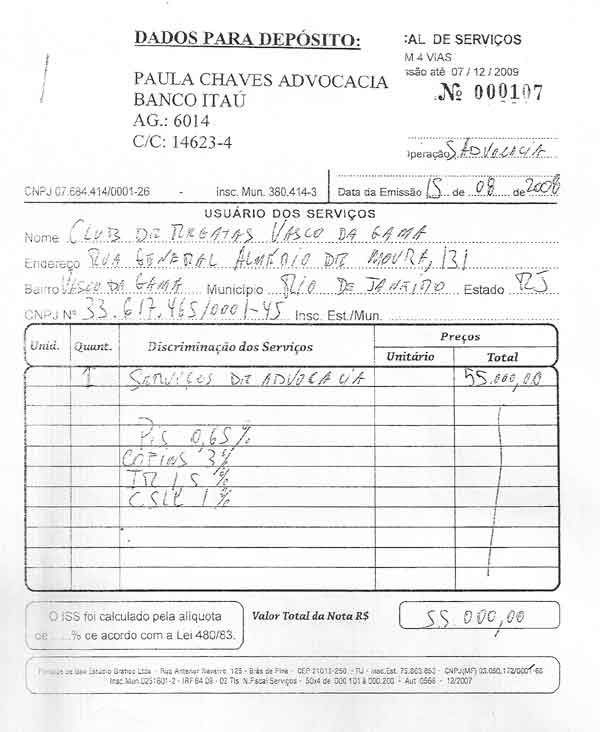 DADOS PARA DEPÓSITO:
PAULA CHAVES ADVOCACIA
BANCO ITAÚ
AG.: 6014
C/C: 14623-4
CAL DE SERVIÇOS
M 4 VIAS
ssão até 07 / 12 / 2009
Nº 000107
peração SADVOCACIA
CNPJ 07.684.414/0001-26 - Insc. Mun. 380.414-3
Data da Emissão 15 de 08 de 2008
USUÁRIO DOS SERVIÇOS
Nome CLUB DE REGATAS VASCO DA GAMA
Endereço RUA GENERAL ALMÉRIO DE MOURA, 131
Bairro VASCO DA GAMA Município RIO DE JANEIRO Estado RJ
CNPJ Nº 33.617.465/0001-45 Insc. Est./Mun.
Unid. Quant. Discriminação dos Serviços Preços
Unitário Total
1 SERVIÇOS DE ADVOCACIA 55.000,00
PIS 0,65%
COFINS 3%
IR 1,5%
CSLL 1%
O ISS foi calculado pela alíquota
de ......% de acordo com a Lei 480/83.
Valor Total da Nota R$ 55.000,00
Estúdio Gráfico Ltda - Rua Antenor Navarro, 125 - Brás de Pina - CEP 21013-250 - Insc.Est. 75.003.653
Insc.Mun.0251601-2 - 02 Tls N.Fiscal Serviços - 50x4 de 000.101 à 000.200 - Aut 0566 - 12/2007